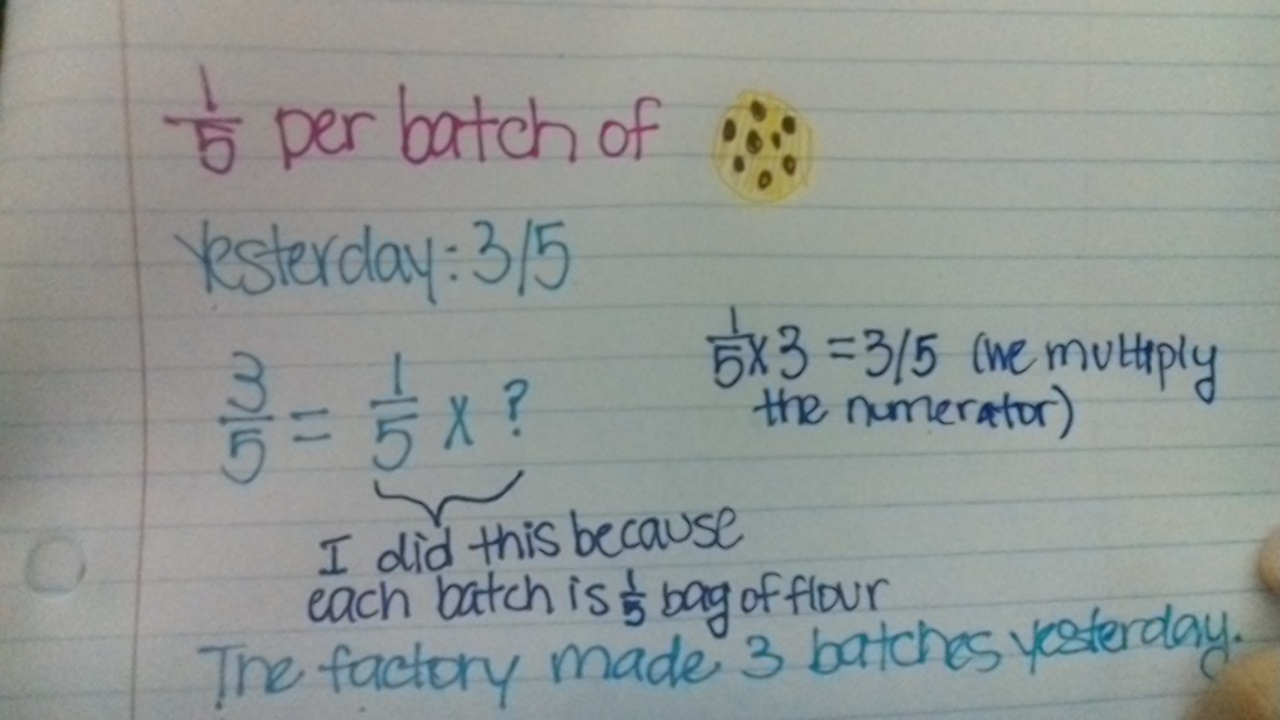 1/5 per batch of
Yesterday: 3/5
3/5 = 1/5 x ?
1/5 x 3 = 3/5 (we multiply
the numerator)
I did this because
each batch is 1/5 bag of flour
The factory made 3 batches yesterday.